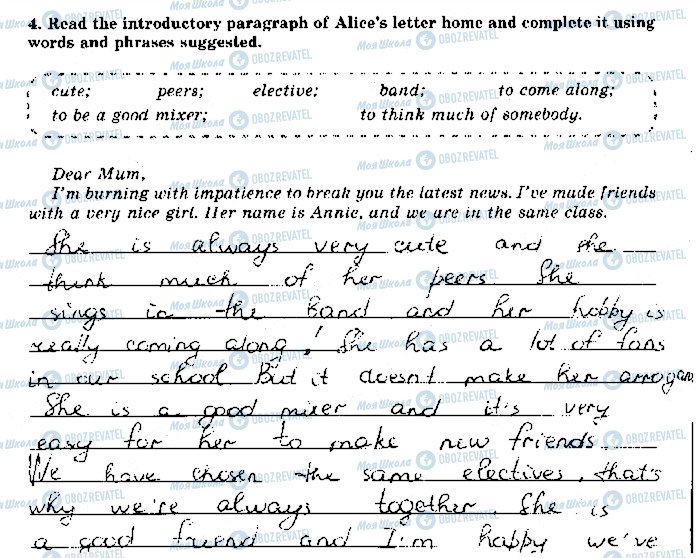 4. Read the introductory paragraph of Alice's letter home and complete it using
words and phrases suggested.
cute; peers; elective; band; to come along;
to be a good mixer; to think much of somebody.
Dear Mum,
I'm burning with impatience to break you the latest news. I've made friends
with a very nice girl. Her name is Annie, and we are in the same class.
She is always very cute and she
think much of her peers. She
sings in the Band and her hobby is
really coming along! She has a lot of fans
in our school But it doesn't make her arrogan
She is a good mixer and it's very
easy for her to make new friends.
We have chosen the same electives, that's
why we're always together. She is
a good friend and I'm happy we've
Моя Школа OBOZREVATEL